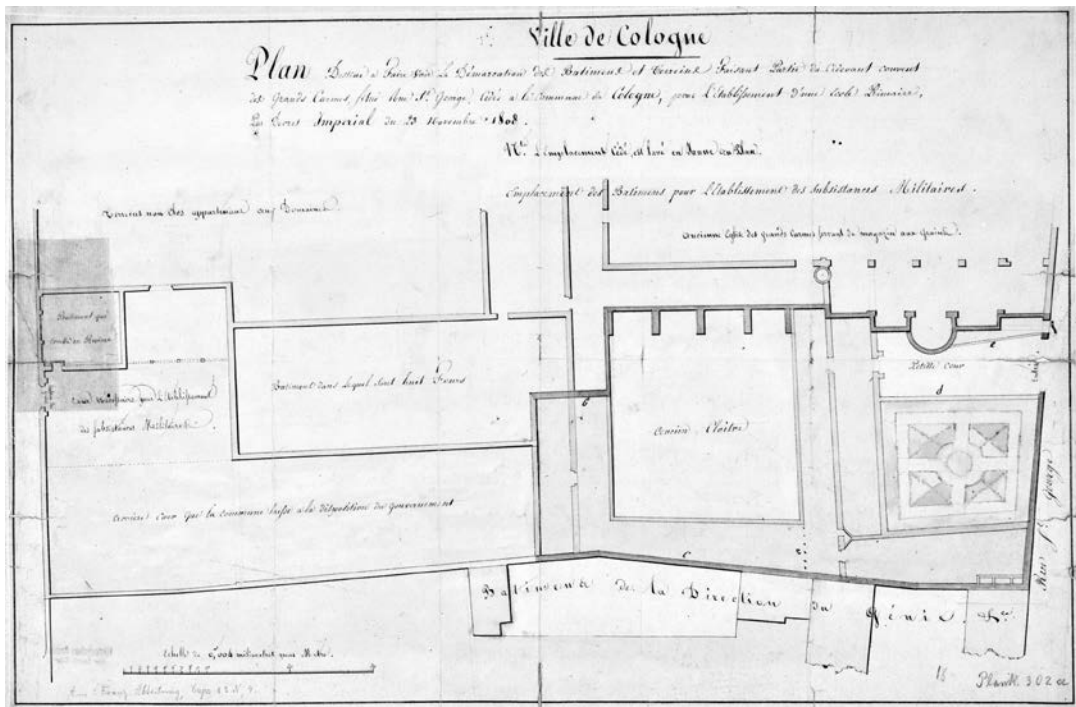 Ville de Cologne
Plan Destiné a Faire Voir la Démarcation des Batimens et Terreins Faisant Partie du Cidevant couvent
des Grands Carmes, situé Rue St. George, Cédés a la Commune de Cologne, pour l'Etablissement d'une Ecole Primaire,
Par Décret Impérial du 23 Novembre 1808.
Na. L'emplacement Cédé, est lavé en Jaune au Plan.
Emplacement des Batimens pour l'Etablissement des Subsistances Militaires.
Terreins non Cédés appartenant aux Domaines
Ancienne Eglise des grands Carmes servant de magazin aux Grains.
Batiment qui
tombe en Ruines
Petite Cour
e
d
Cour nécessaire pour l'Etablissement
des subsistances Militaires.
Batiment dans lequel sont huit Fours
b
Ancien Cloître
Ancien Cour que la commune laisse a la disposition du gouvernement
c
Rue St. George
Batimens de la Direction du Génie
Echelle de 0,004 millimètres pour Mètre.
18
Plank. 3.02